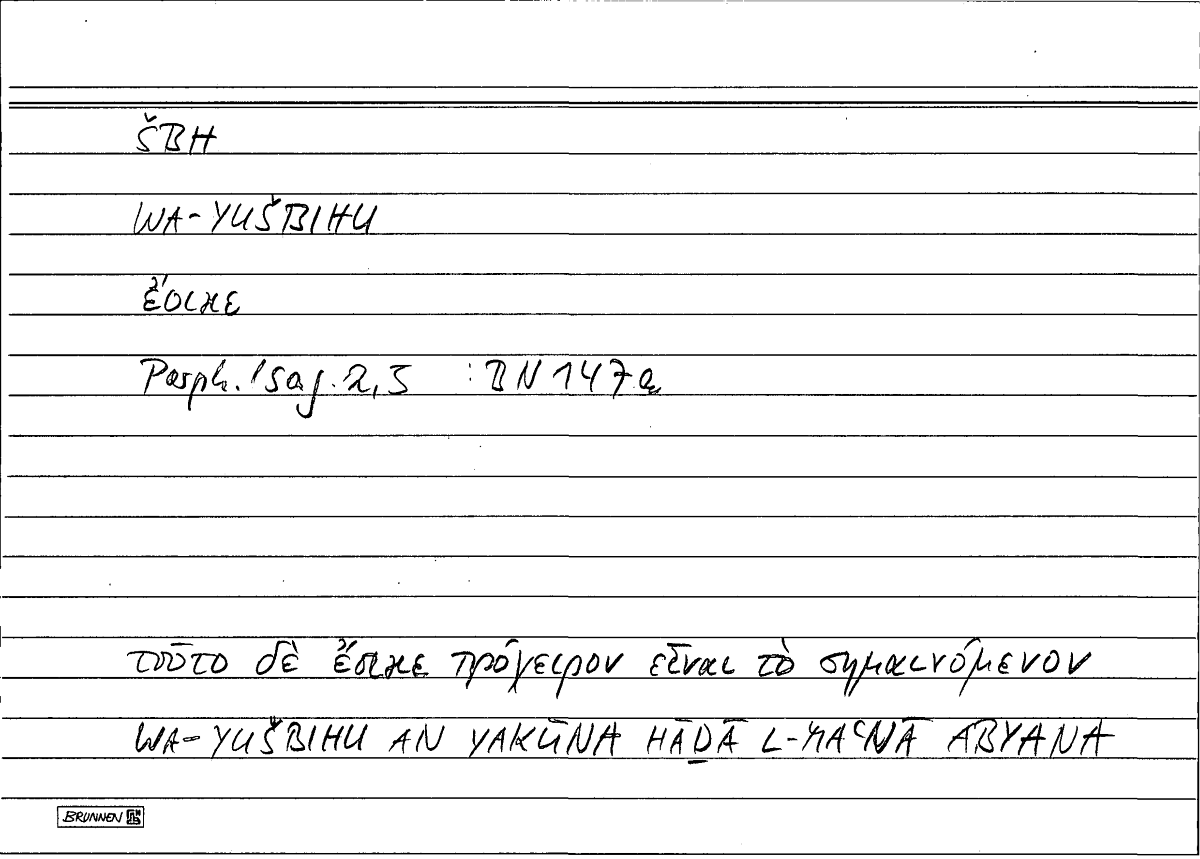 ŠBH
WA-YUŠBIHU
ἔοικε
Porph. Isag. 2,5 : BN 147a
τοῦτο δὲ ἔοικε πρόχειρον εἶναι τὸ σημαινόμενον
WA-YUŠBIHU AN YAKŪNA HĀḎĀ L-MAʿNĀ ABYANA
BRUNNEN